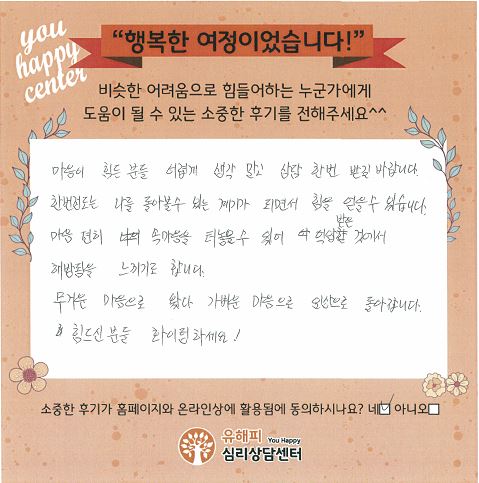 you
happy
center
"행복한 여정이었습니다!"
비슷한 어려움으로 힘들어하는 누군가에게
도움이 될 수 있는 소중한 후기를 전해주세요^^
마음이 힘든 분들 어렵게 생각 말고 상담 한번 받길 바랍니다.
한번정도는 나를 돌아볼수 있는 계기가 되면서 힘을 얻을 수 있습니다.
마음 편히 속마음을 터놓을수 있어 받은 것 에서
해방됨을 느끼기도 합니다.
무거운 마음으로 왔다 가벼운 마음으로 돌아갑니다.
힘드신 분들 화이팅하세요!
소중한 후기가 홈페이지와 온라인상에 활용됨에 동의하시나요? 네☑ 아니오☐
유해피 You Happy
심리상담센터